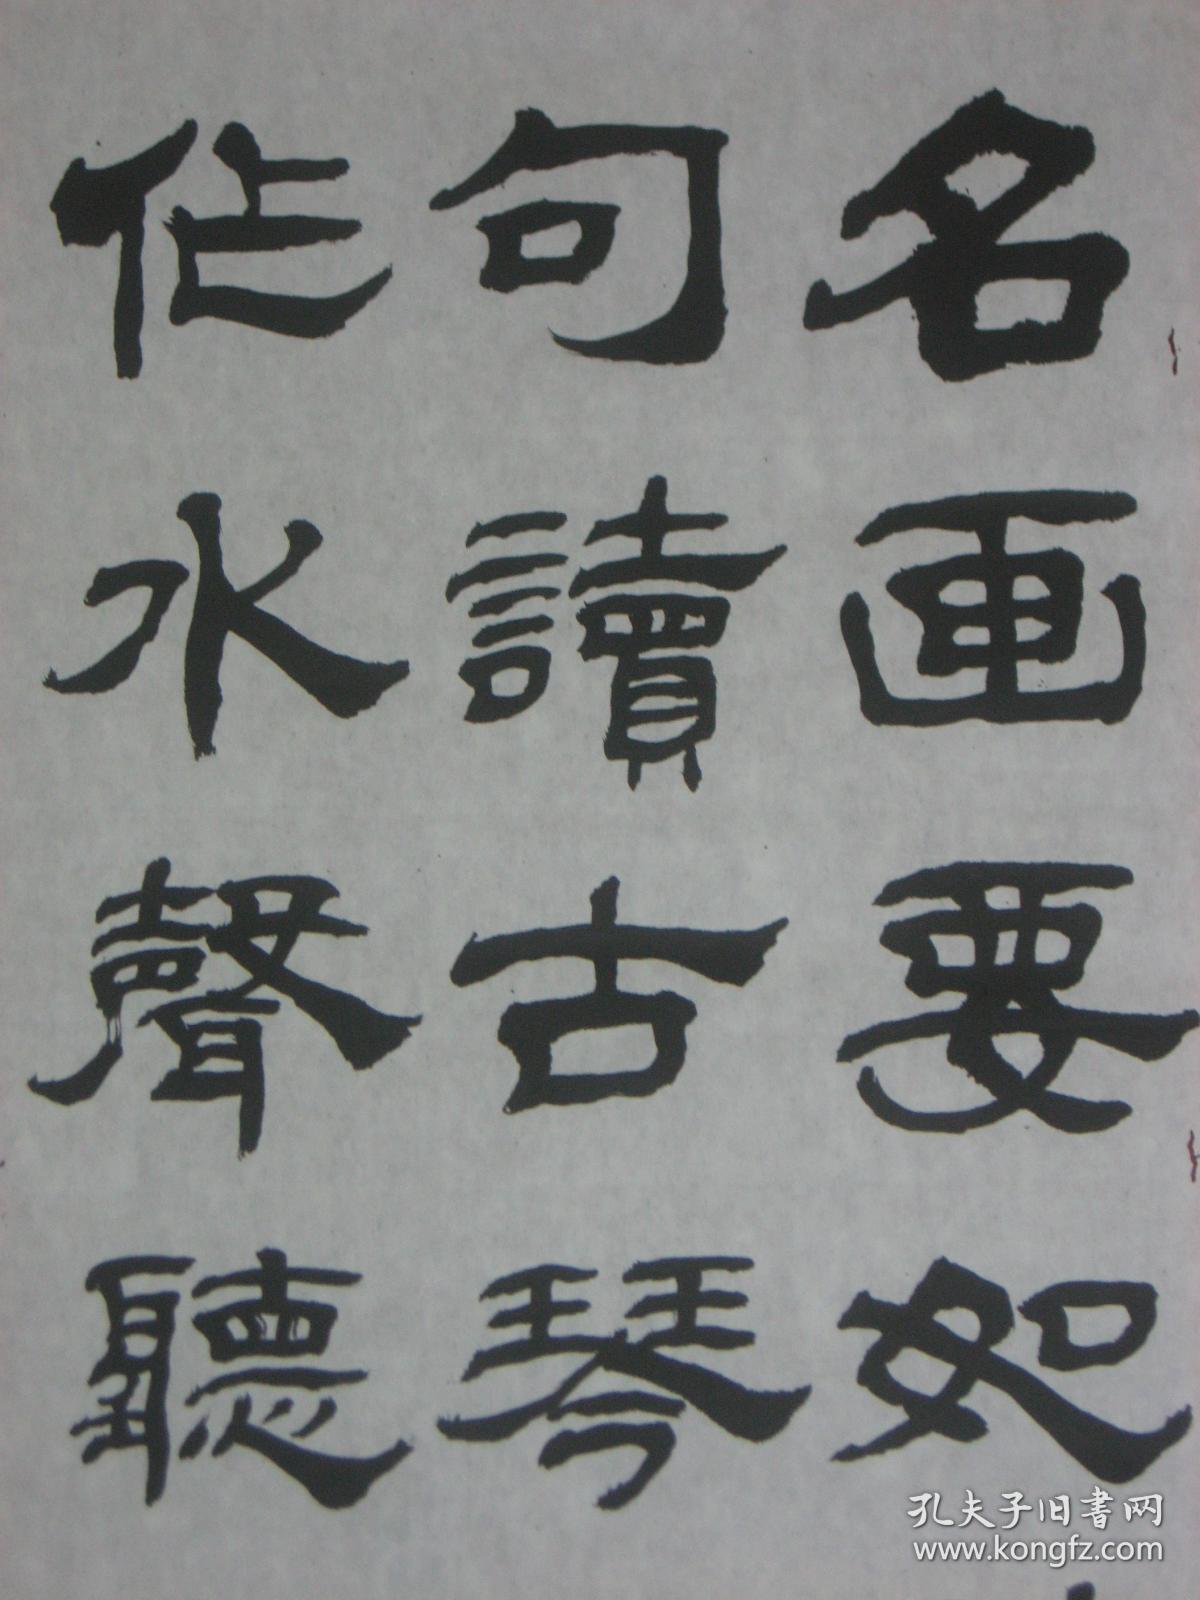 名画要如
句讀古琴
作水聲聽
孔夫子旧书网
www.kongfz.com